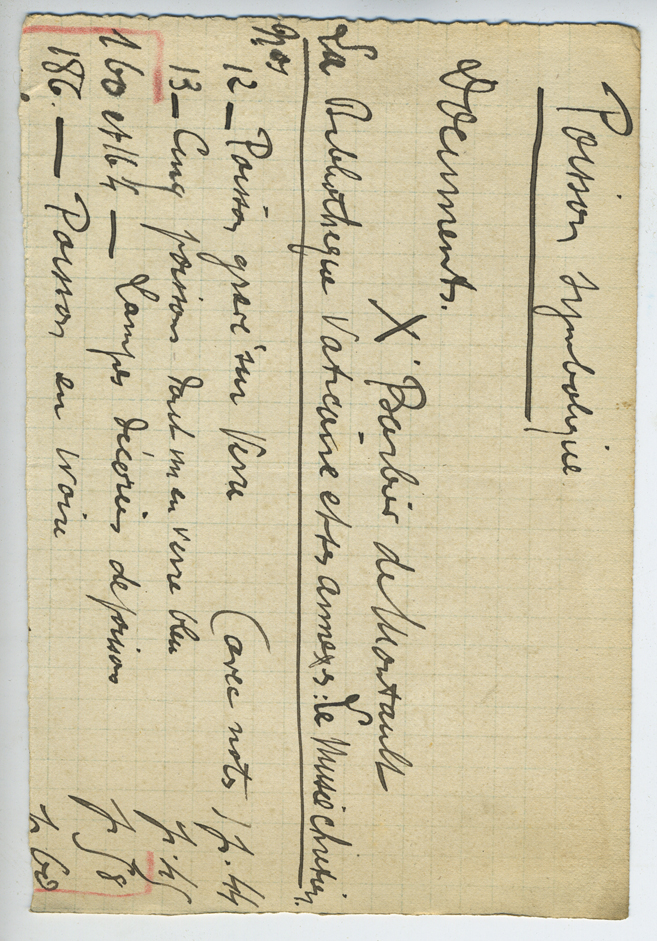 Poisson symbolique
Documents.
X. Barbier de Montault
La Bibliothèque Vaticane et ses annexes : Le Musée chrétien.
Nos
12 — Poisson gravé sur verre (avec note) p. 44
13 — Cinq poissons dont un en verre bleu p. 45
160 et 164 — Lampes décorées de poissons p 58
186. — Poisson en ivoire p 60